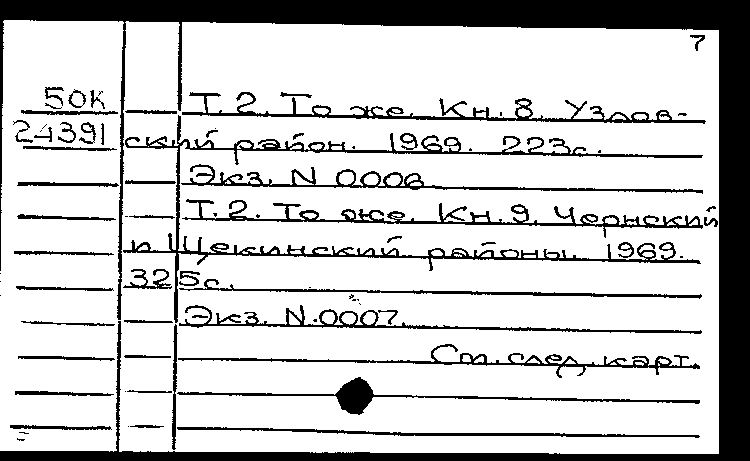 7
50К Т.2. То же. Кн. 8. Узлов-
24391 ский район. 1969. 223с.
Экз. N 0006
Т.2. То же. Кн. 9. Чернский
и Щекинский районы. 1969.
325с.
Экз. N.0007.
См. след. карт.